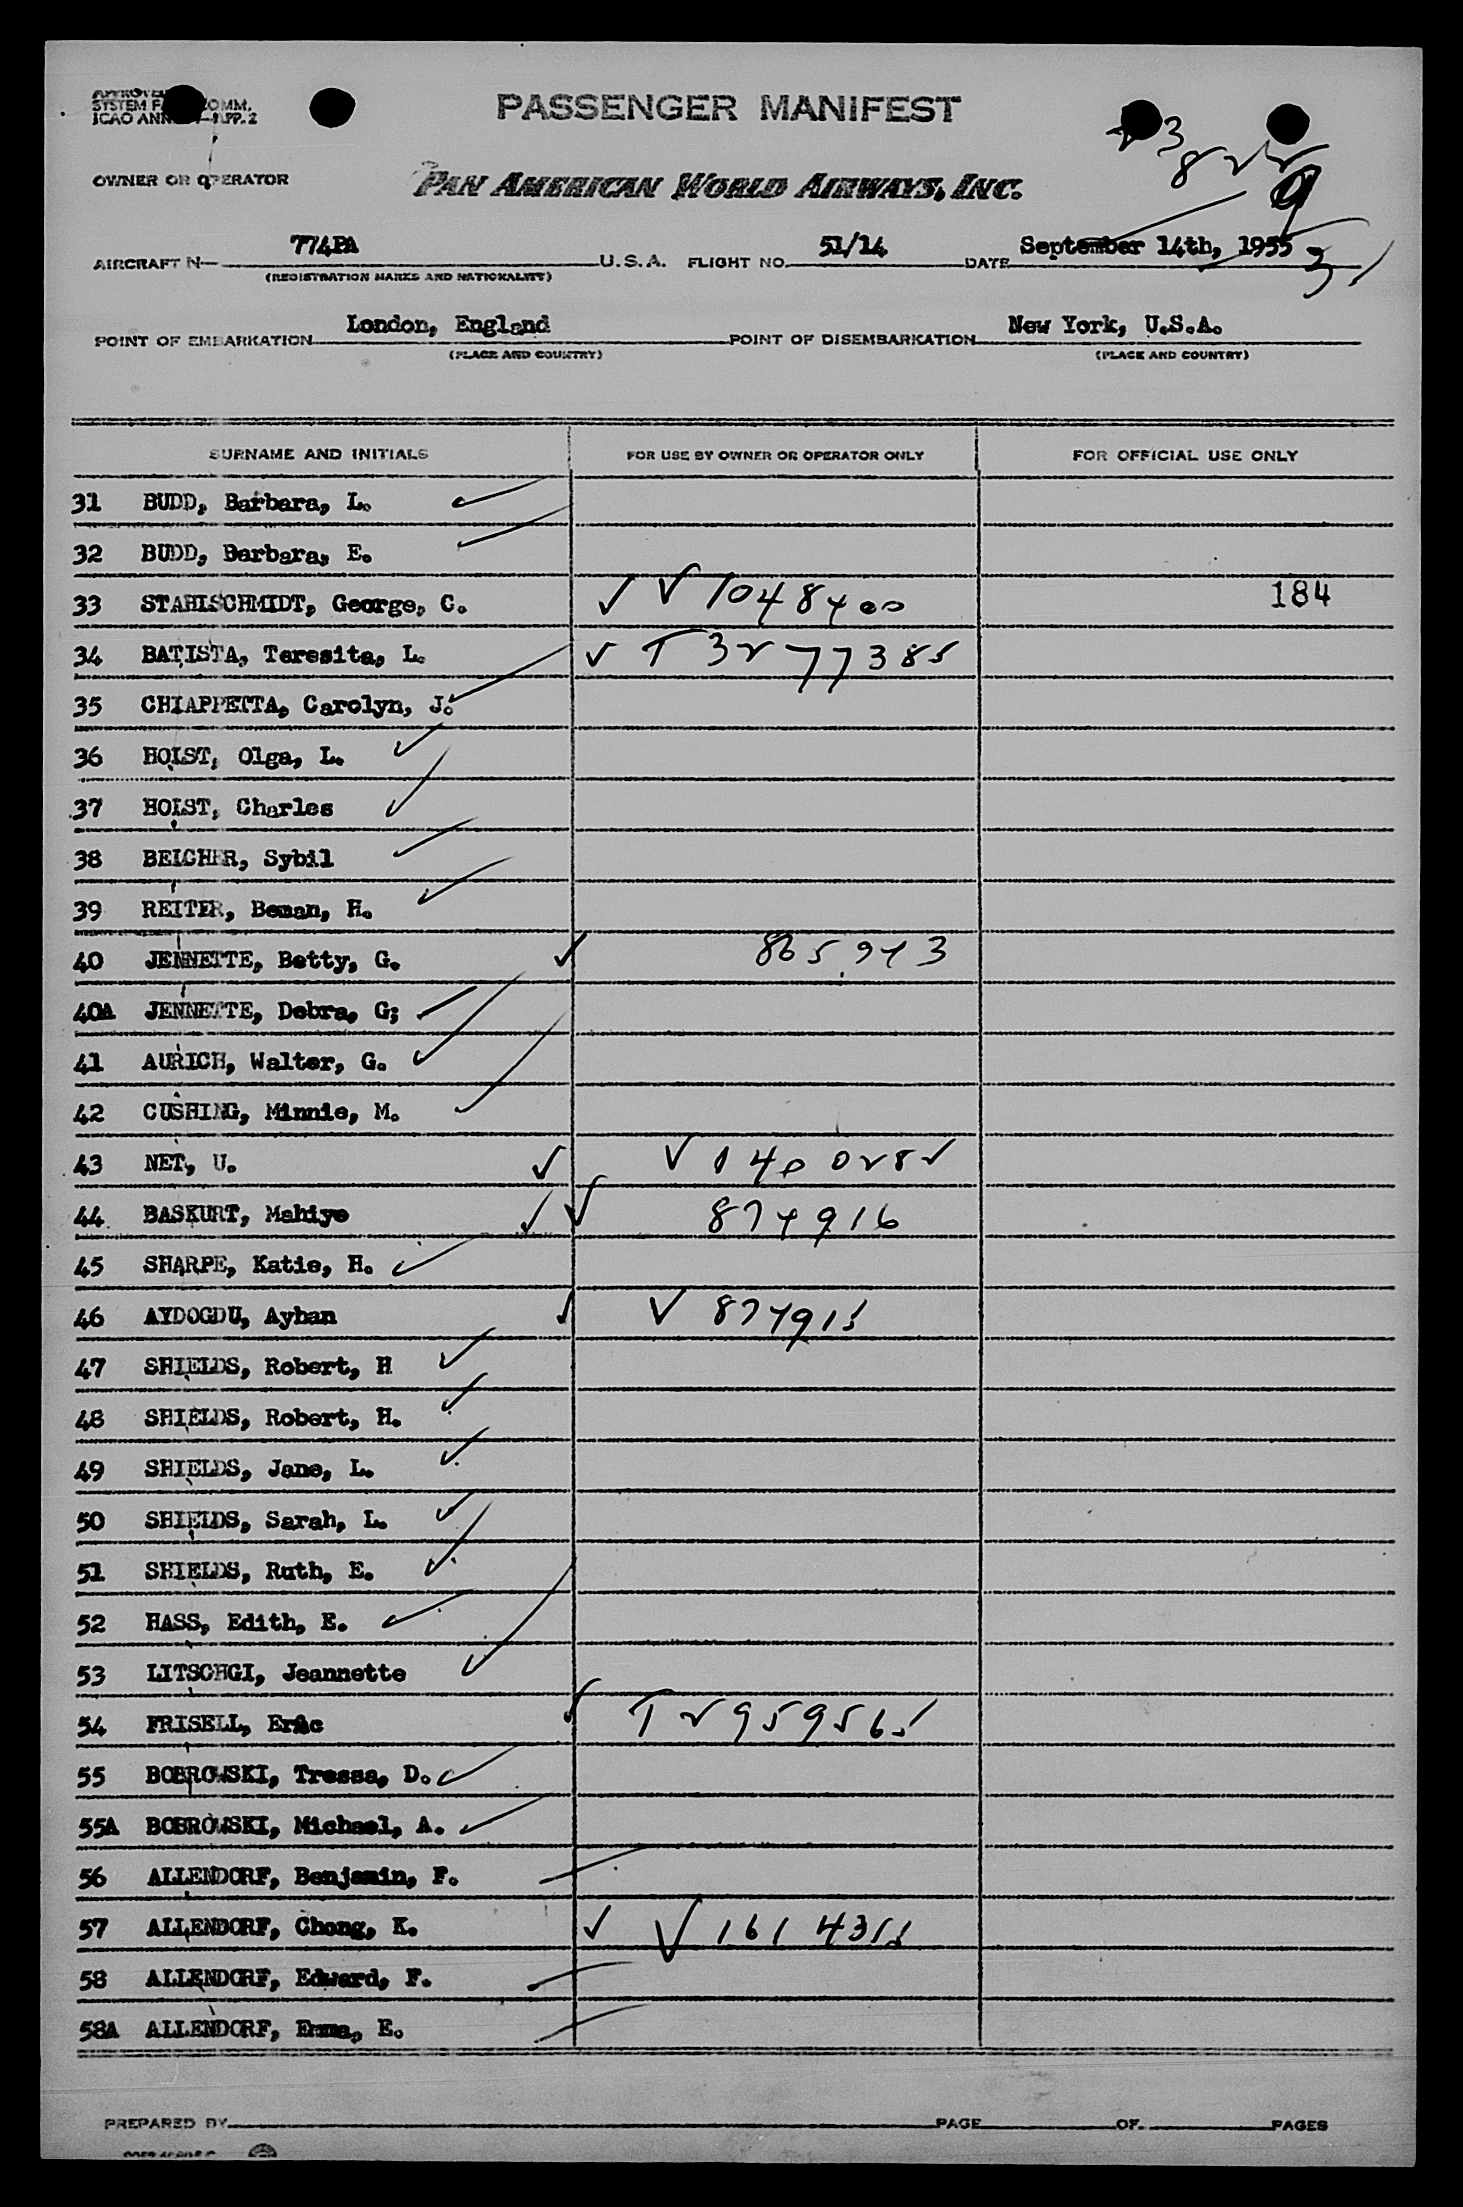 APPROVED
SYSTEM F COMM.
ICAO ANN APP. 2
PASSENGER MANIFEST
OWNER OR OPERATOR PAN AMERICAN WORLD AIRWAYS, INC.
AIRCRAFT N— 774PA U.S.A. FLIGHT NO. 51/14 DATE September 14th, 1955
(REGISTRATION MARKS AND NATIONALITY)
POINT OF EMBARKATION London, England POINT OF DISEMBARKATION New York, U.S.A.
(PLACE AND COUNTRY) (PLACE AND COUNTRY)
SURNAME AND INITIALS FOR USE BY OWNER OR OPERATOR ONLY FOR OFFICIAL USE ONLY
31 BUDD, Barbara, L.
32 BUDD, Barbara, E.
33 STAHLSCHMIDT, George, C. V 1048400 184
34 BATISTA, Teresita, L. T 3277385
35 CHIAPPETTA, Carolyn, J.
36 HOLST, Olga, L.
37 HOLST, Charles
38 BELCHER, Sybil
39 REITER, Beman, H.
40 JENNETTE, Betty, G. 865943
40A JENNETTE, Debra, G;
41 AURICH, Walter, G.
42 CUSHING, Minnie, M.
43 NET, U.
44 BASKURT, Mahiye 874916
45 SHARPE, Katie, H.
46 AYDOGDU, Ayhan V 874915
47 SHIELDS, Robert, H
48 SHIELDS, Robert, H.
49 SHIELDS, Jane, L.
50 SHIELDS, Sarah, L.
51 SHIELDS, Ruth, E.
52 HASS, Edith, E.
53 LITSCHGI, Jeannette
54 FRISELL, Eric T 2959565
55 BOBROWSKI, Tressa, D.
55A BOBROWSKI, Michael, A.
56 ALLENDORF, Benjamin, F.
57 ALLENDORF, Chong, K. V 1614355
58 ALLENDORF, Edward, F.
58A ALLENDORF, Emma, E.
PREPARED BY PAGE OF PAGES